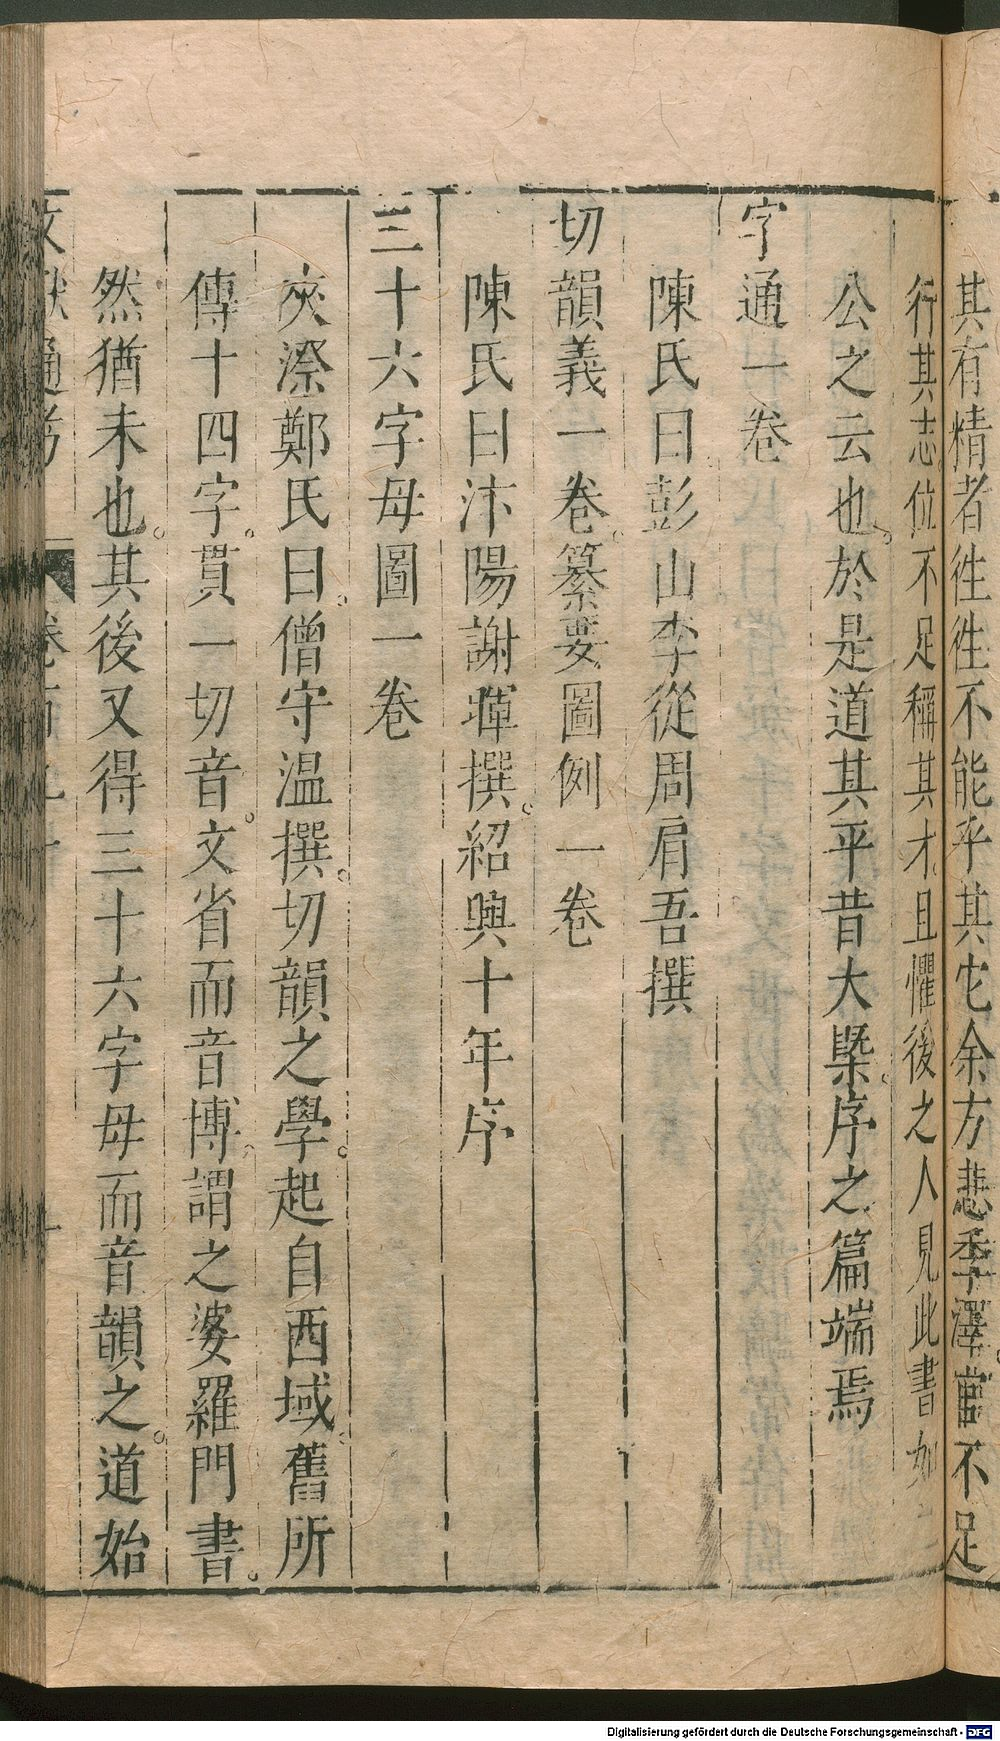 其有精者徃徃不能乎其它余方悲季澤官不足
行其志位不足稱其才且懼後之人見此書如
公之云也於是道其平昔大槩序之篇端焉
字通一卷
陳氏曰彭山李從周肩吾撰
切韻義一卷纂要圖例一卷
陳氏曰汴陽謝暉撰紹興十年序
三十六字母圖一卷
夾漈鄭氏曰僧守温撰切韻之學起自西域舊所
傳十四字貫一切音文省而音博謂之婆羅門書
然猶未也其後又得三十六字母而音韻之道始
文獻通考
卷百
Digitalisierung gefördert durch die Deutsche Forschungsgemeinschaft - DFG